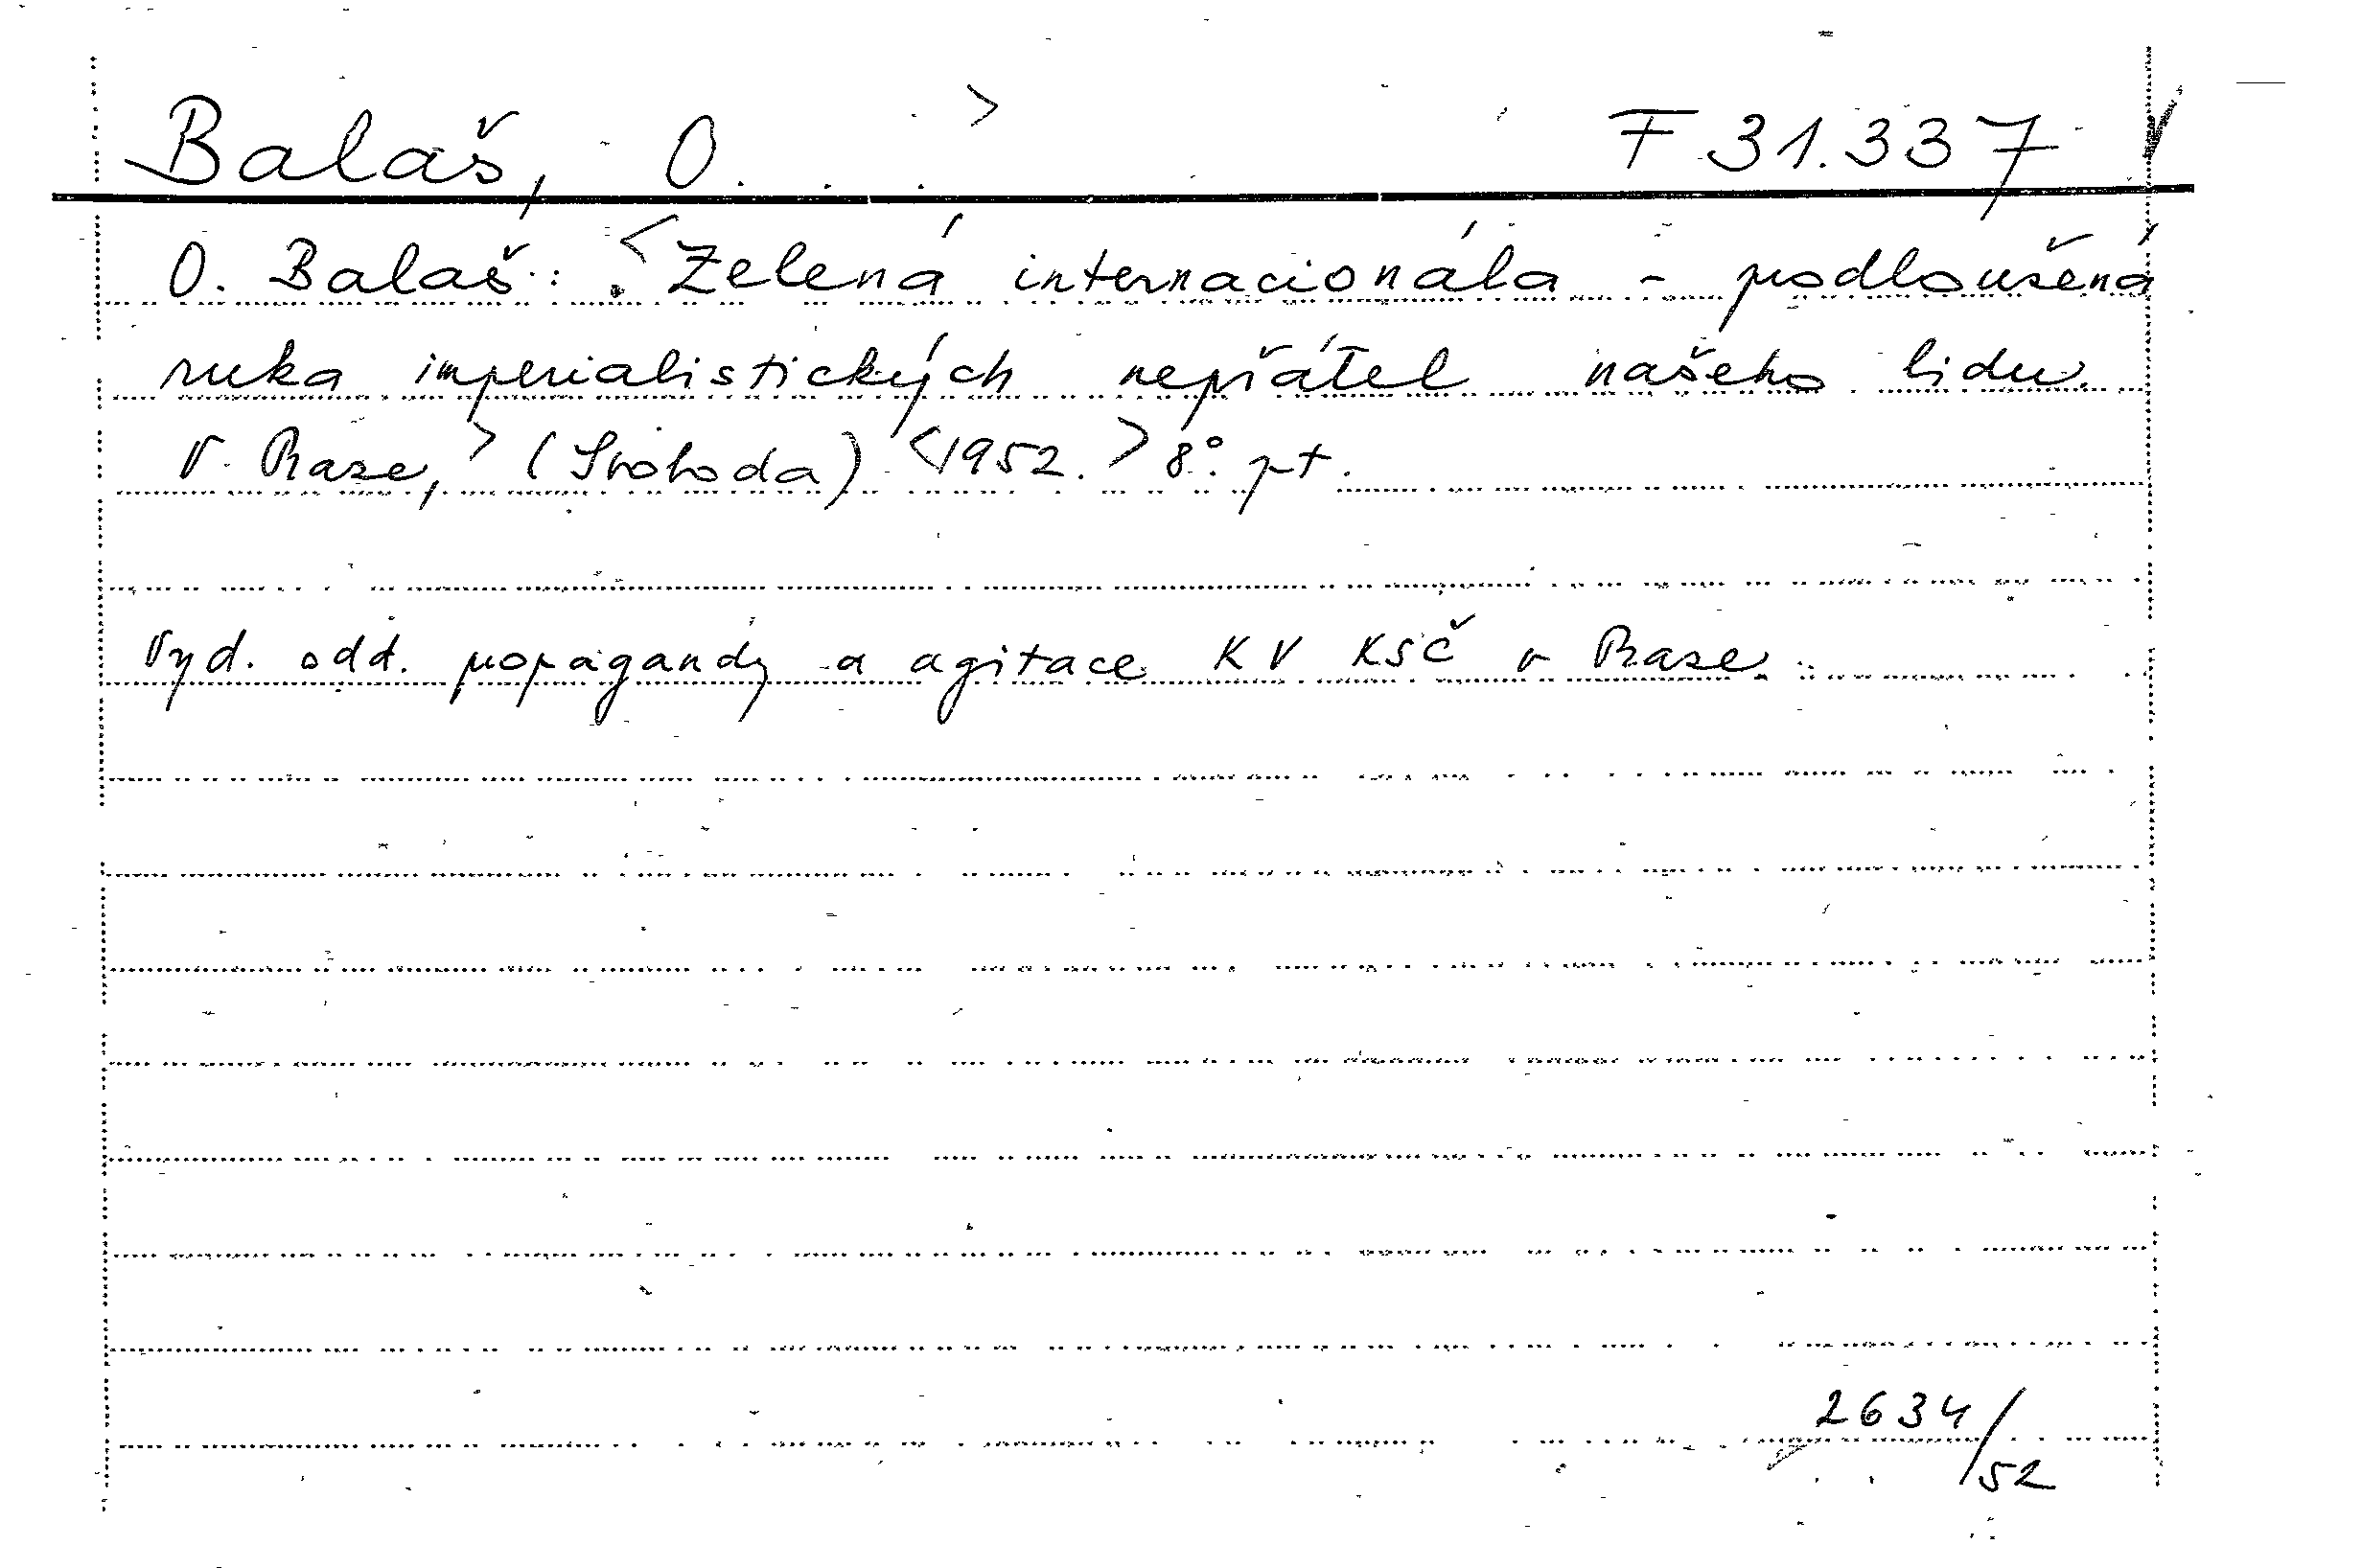 Balaš, O. . . > F 31.337
O. Balaš: <Zelená internacionála - prodloužená
ruka imperialistických nepřátel našeho lidu.
V Praze,> (Svoboda) <1952.> 8°. pt.
Vyd. odd. propagandy a agitace KV KSČ v Praze.
2634/52